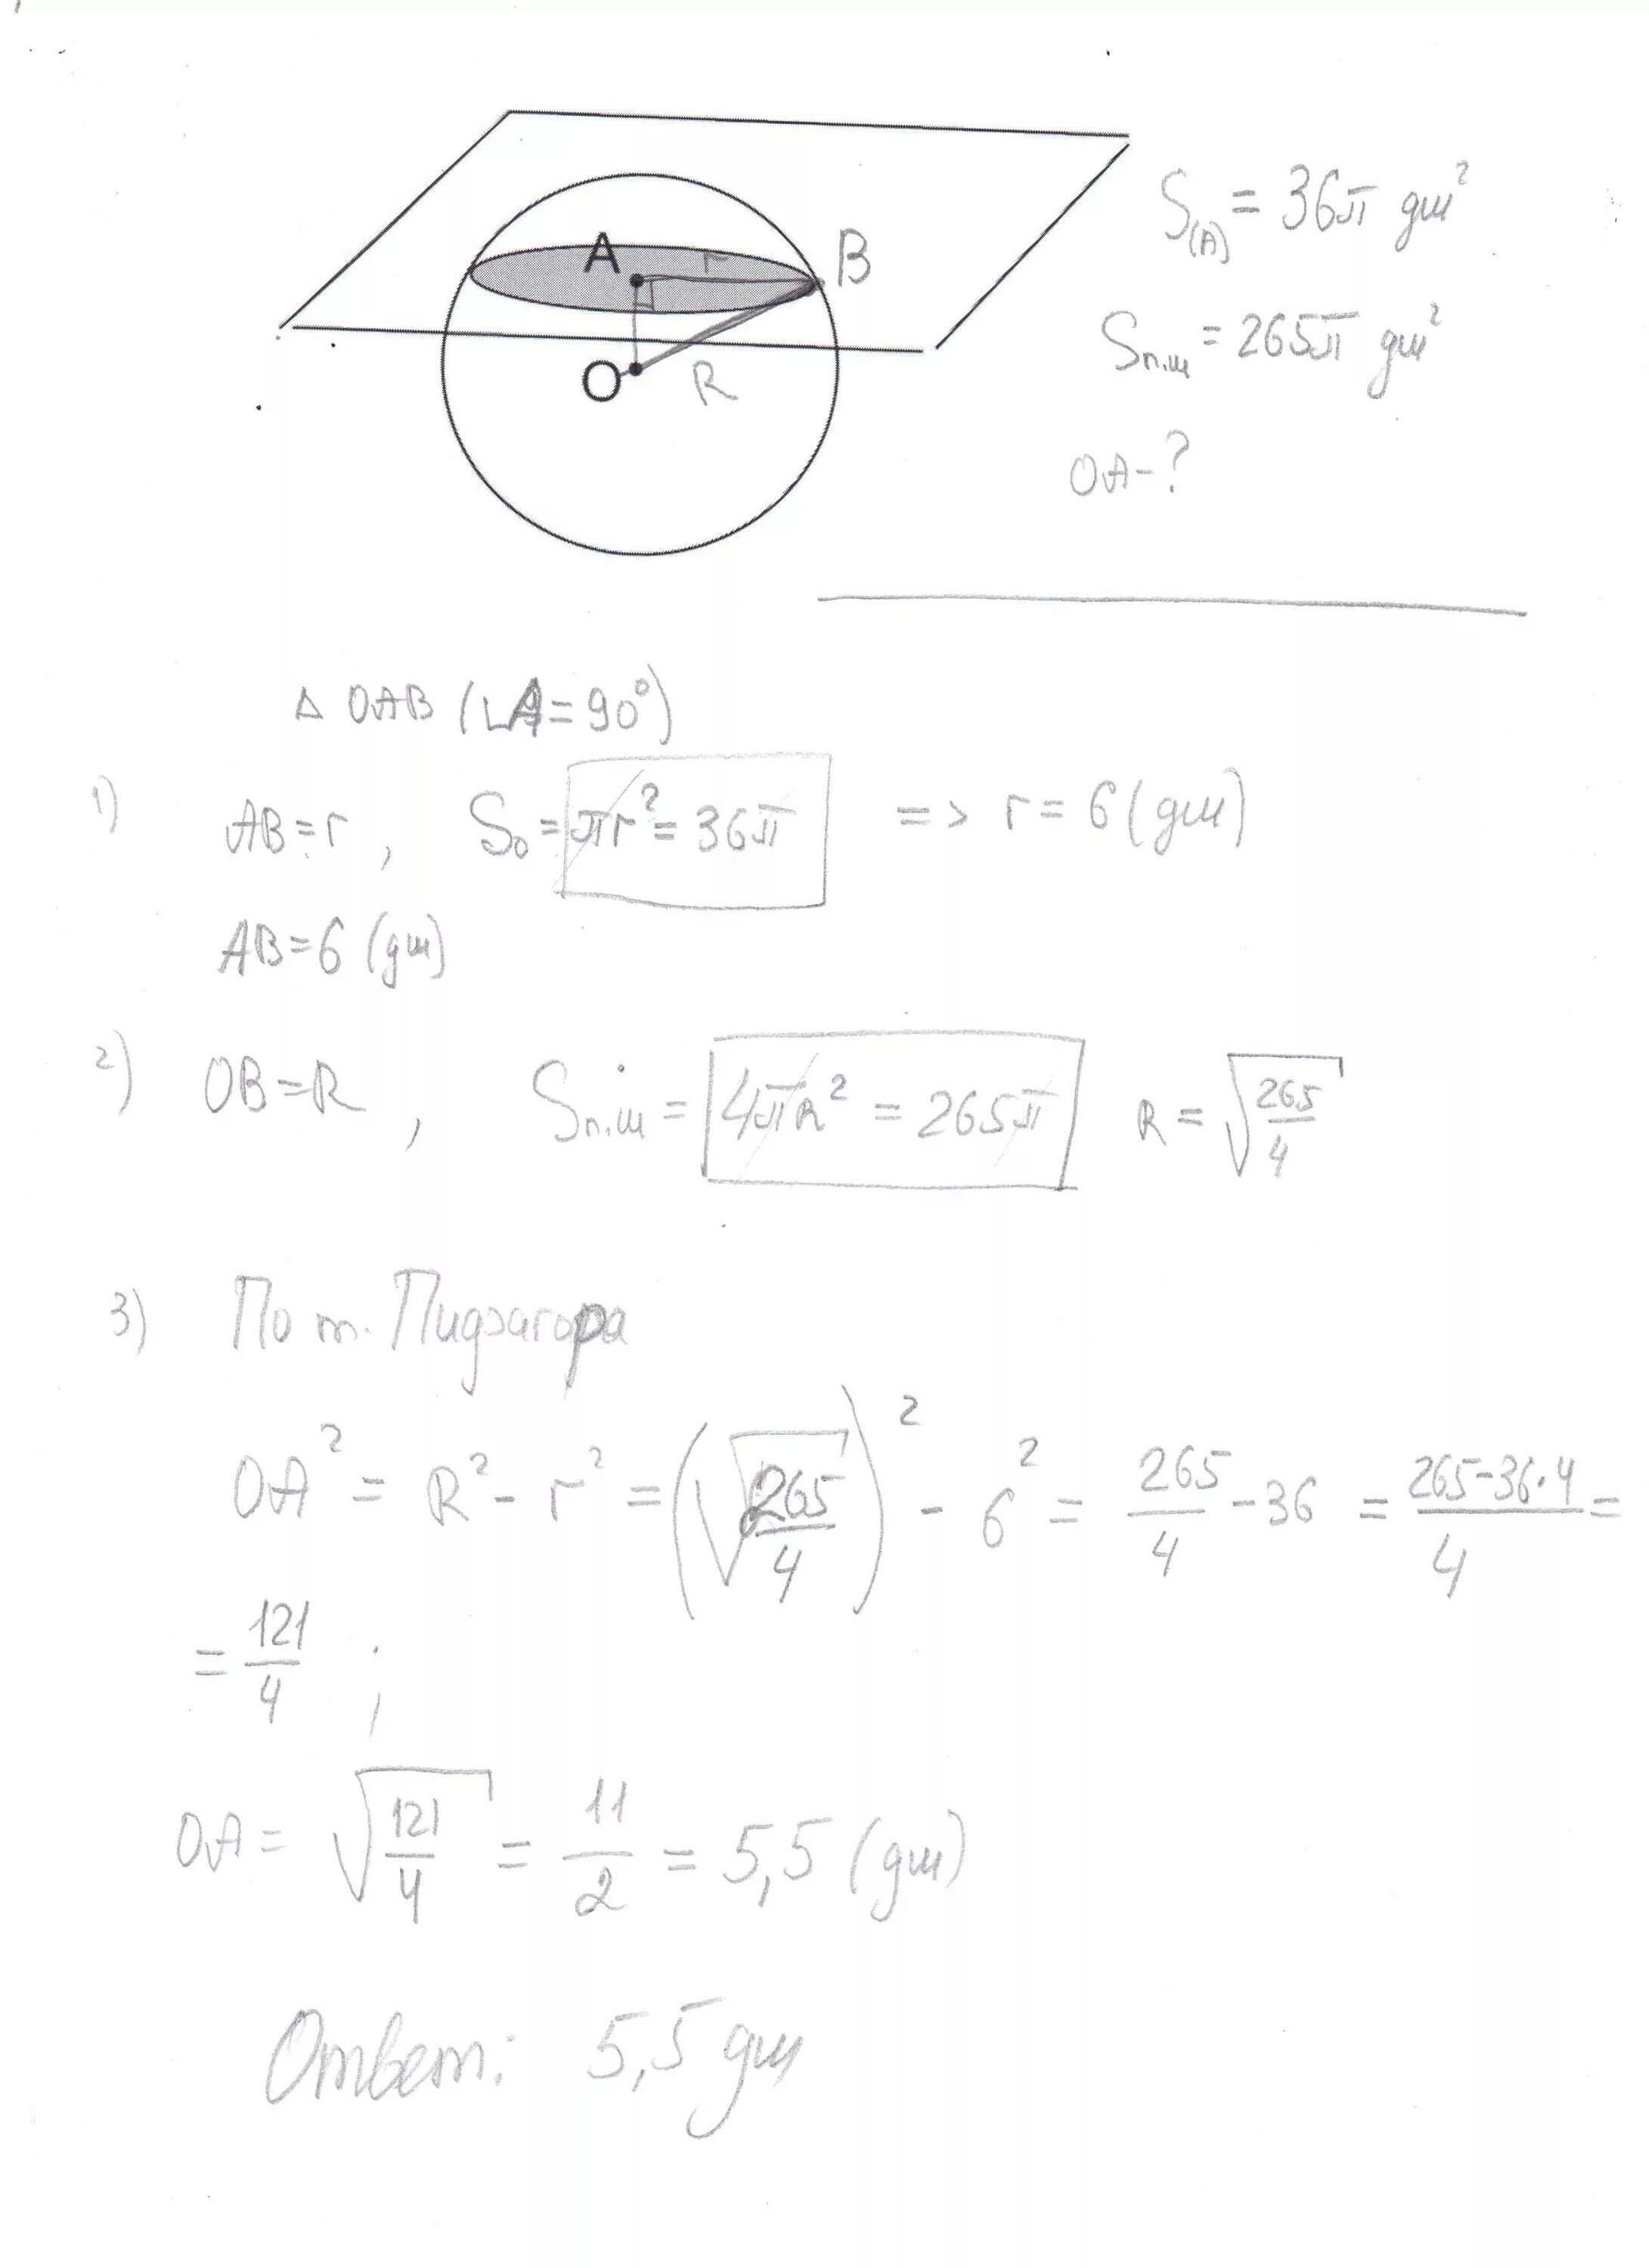 A
r
B
O
R
S(A) = 36π дм²
Sп.ш = 265π дм²
OA - ?
Δ OAB (∟A = 90°)
1) AB = r , S₀ = πr² = 36π => r = 6 (дм)
AB = 6 (дм)
2) OB = R , Sп.ш = 4πR² = 265π R = √(265/4)
3) По т. Пидзагора
OA² = R² - r² = (√(265/4))² - 6² = 265/4 - 36 = (265 - 36·4)/4 =
= 121/4 ;
OA = √(121/4) = 11/2 = 5,5 (дм)
Ответ: 5,5 дм